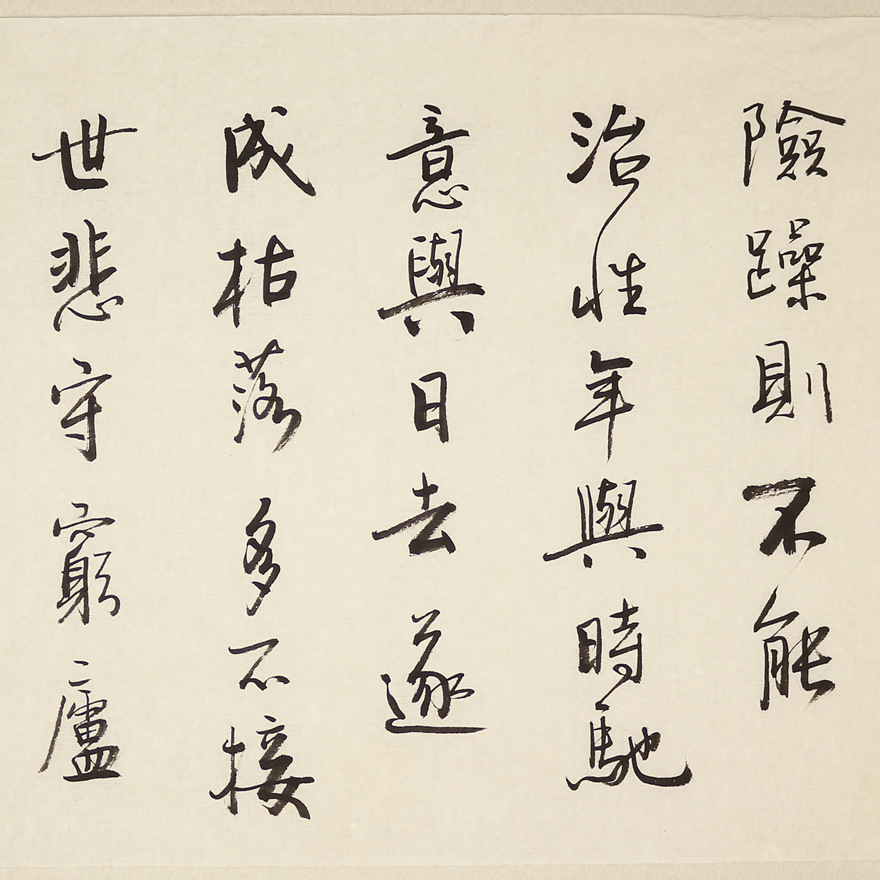 險躁則不能
治性年與時馳
意與日去遂
成枯落多不接
世悲守窮廬